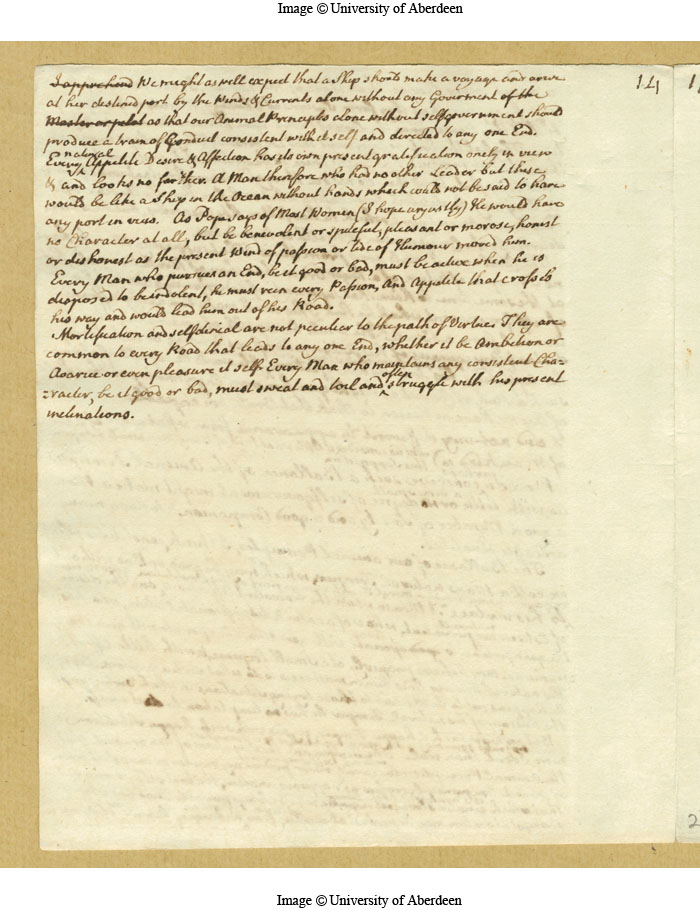 Image © University of Aberdeen
14
I apprehend We might as well expect that a Ship should make a voyage and arive
at her destined port by the Winds & Currents alone without any Goverment of the
Master or pilot as that our Animal Principles alone without selfgovernment should
produce a train of Conduct consistent with it self and directed to any one End.
Every natural Appetite Desire & Affection has its own present gratification onely in view
& and looks no farther. A Man therefore who had no other Leader but these,
would be like a Ship in the Ocean without hands which could not be said to have
any port in view. As Pope says of Most Women (I hope unjustly) He would have
no Character at all, but be benevolent or spiteful, pleasant or morose, honest
or dishonest as the present Wind of passion or tide of Humour moved him.
Every Man who pursues an End, be it good or bad, must be active when he is
disposed to be indolent, he must rein every Passion, and Appetite that crosses
his way and would lead him out of his Road.
Mortification and selfdenial are not peculiar to the path of Virtue. They are
common to every Road that leads to any one End, whether it be Ambition or
Avarice or even pleasure it self. Every Man who maintains any consistent Cha=
=racter, be it good or bad, must sweat and toil and often struggle with his present
inclinations.
2
Image © University of Aberdeen